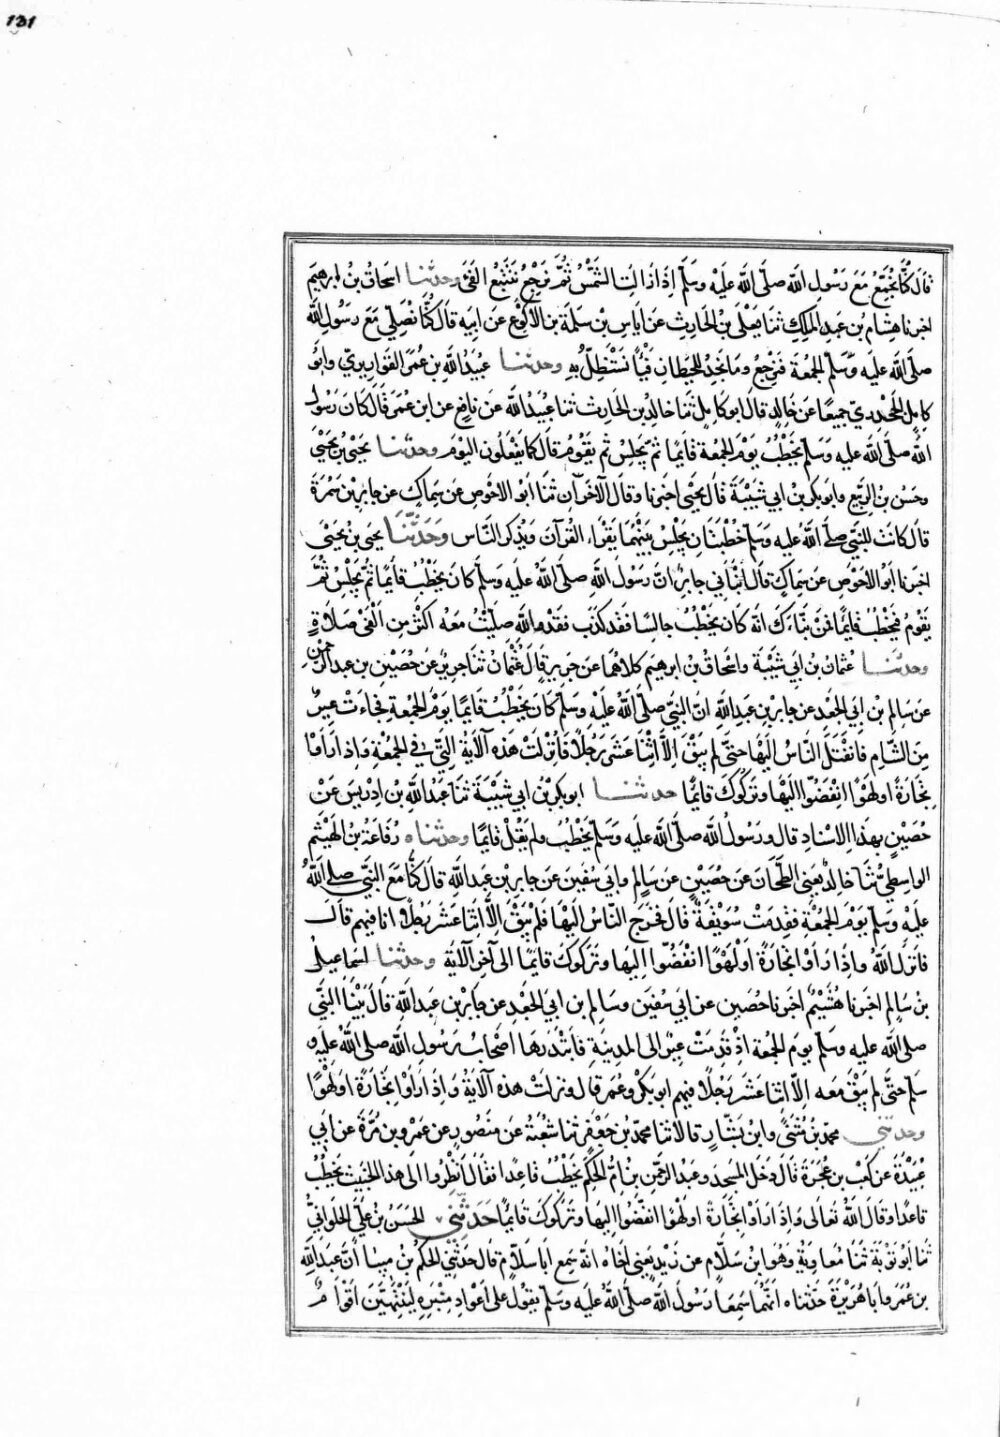 131
قال كُنَّا نُجَمِّعُ مَعَ رَسُولِ الله صلَّى الله عليْه وسَلَّم إذا زالتِ الشَّمْسُ ثُمَّ نَرْجِعُ نَتَتَبَّعُ الفَئَ وحدثنا اسحاقُ بنُ ابرهيم
اخبرنا هِشام بن عبد الملكِ ثنا يَعْلَى بن الحارثِ عن اياس بن سَلَمَة بن الاكْوَعِ عن ابيه قال كُنَّا نُصَلِّي مَعَ رسُولُ الله
صلَّى الله عليه وسَلَّم الجمُعَة فنَرْجعُ ومَا نَجِدُ للحيطانِ فَيْأً نَسْتَظِلُّ بِهِ وحدثنا عبيْدُ الله بن عُمَرَ القواريريّ وابُو
كامِلٍ الجحْدريّ جميعًا عن خالِدٍ قال ابو كامِلٍ ثنا خالد بن الحارث ثنا عُبَيْدُ الله عن نافعٍ عن ابن عمَرَ قال كان رَسُول
الله صلَّى الله عليه وَسَلَّم يخطُبُ يَوْمَ الجمعَة قائِمًا ثمَّ يَجلِسُ ثم يَقُومُ قال كما يَفْعَلُونَ اليَوْمَ وحدثنا يَحْيَى بنُ يَحْيَى
وحسَنُ بنُ الرَّبيعِ وابو بكر بن ابي شيْبَةَ قال يحيَى اخبرنا وقال الآخرانِ ثَنَا ابو الاحوص عن سِماكٍ عن جابر بن سَمُرَةَ
قال كانَت للنبَّي صلَّى الله عليه وسَلَّم خُطْبَتَان يَجْلِسُ بَيْنَهُمَا يَقْرَاءُ القُرآنَ وَيُذَكِّرُ النَّاس وَحَدَّثَنَا يحيى بن يحْيَى
اخبرنا أبو الاحوَصِ عن سِماكٍ قال أنْبَأني جابرٌ انَّ رَسُولَ الله صلَّى الله عليه وسَلَّم كان يَخْطُبُ قائِمًا ثُمَّ يَجْلِسُ ثُمَّ
يَقُومُ فيَخْطُبُ قائِمًا فَمَنْ نَبَّاءَكَ انَّه كانَ يَخْطُبُ جالِسًا فقد كَذَبَ فقد والله صلَّيْتُ مَعَهُ اكْثَرَ مِن ألْفَيْ صَلاةٍ
وحدثنا عُثمانُ بن ابي شَيْبَة واسحاقُ بن ابرهيم كلاهُما عن جَريرٍ قال عُثمانُ ثنا جريرٌ عن حُصَيْنِ بن عبد الرحمنِ
عن سَالِم بن ابي الجَعْدِ عن جابر بن عَبد اللهِ انَّ النبيَّ صلَّى الله عليْه وسَلَّم كانَ يَخْطُبُ قائِمًا يَوْمَ الجمُعَةِ فجاءَتْ عيرٌ
مِنَ الشَّام فانفَتَل النَّاسُ إليْها حتَّى لم يَبْقَ الَّا اثْنَا عَشَرَ رَجُلًا فاُنْزِلَتْ هَذه الآيَةُ الَّتي في الجمُعَةِ وَاذا رَأوْا
تِجارَةً اولَهْوًا انفَضُّوا اليْهَا وتَرَكُوكَ قائِمًا حدثنا ابو بكر بنُ ابي شَيْبَةَ ثنَا عبْدُ الله بن إدْرِيسَ عَنْ
حُصَيْنٍ بهذَا الاسْنادِ قال ورَسُولُ الله صلَّى الله عليه وسَلَّم يَخْطُبُ ولم يَقُلْ قائِمًا وحدثناه رُفاعَة بنُ الهَيْثَم
الواسِطيُّ ثنَا خالِدٌ يَعْني الطَّحَّانَ عن حُصَيْنٍ عن سَالِمٍ وابي سُفينَ عن جابر بن عَبد اللهِ قال كُنَّا مَعَ النَّبيِّ صلى اللهُ
عليْه وسَلَّم يَوْمَ الجمُعَةِ فقدِمَتْ سُوَيْقَةٌ قالَ فخَرَجَ النَّاسُ اليْها فلم يَبْقَ الَّا اثنَا عَشَرَ رَجُلًا انا فيهِم قالَ
فأنْزَلَ اللهُ وإذا رَاَوْا تِجارَةً أوْلَهْوًا انْفَضُّوا اليها وتَرَكُوكَ قائِمًا الى آخر الآيَة وحدثنا اسماعيلُ
بن سَالِم اخبرنا هُشَيْمٌ اخبرنا حُصَين عن ابي سُفيَن وسَالِم بن ابي الجَعْدِ عن جابر بن عبد الله قال بَيْنَا النبَّي
صلى الله عليه وسَلَّم يومَ الجُمُعَة اذْ قَدِمَتْ عِيرٌ الى المدينَةِ فابْتَدَرَهَا اَصْحَابُ رَسُول الله صلى اللهُ عليه و
سَلَّم حتَّى لم يَبْقَ معَه الَّا اثنا عَشَرَ رَجُلًا فيهم ابو بكرٍ وعُمَر قال ونزلَتْ هذه الآيَةُ وَإذا رَاَوْا تِجارَةً اولَهْوًا
وحدثني محمّد بن مُثَنَّى وابن بَشَّارٍ قالا ثنا محمّد بن جَعْفَر ثنا شُعْبَةُ عن مَنصُورٍ عن عَمْرو بن مُرَّة عن ابي
عُبَيْدَةَ عن كَعْبِ بن عُجْرَةَ قَالَ دَخَلَ المسجدَ وعبْدُ الرَّحمن بن اُمِّ الحَكَمِ يَخْطُبُ قاعِدًا فقالَ انظُرُوا الى هذا الخَبيثِ يَخْطُبُ
قاعدًا وقالَ اللهُ تعَالى وَاذا رَاَوْا تجارةً اولَهْوًا انفَضُّوا اليها وتَرَكُوكَ قائِمًا حَدَّثَني الحَسَنُ بن عَليّ الحلْوانيُّ
ثنا ابُو تَوْبَةَ ثَنَا معاويَةُ وَهُوَ ابنُ سَلَّامٍ عن زَيْدٍ يَعْني اَخاه انّه سَمِعَ اَبا سَلَّامٍ قال حَدَّثني الحكمُ بنُ مينا أنَّ عبدَ الله
بن عُمَرَ وابَا هُرَيْرَةَ حَدَّثاه انَّهُمَا سَمِعَا رَسُولَ الله صلَّى الله عليَه وسَلَّم يقولُ على اَعْوَادِ مِنْبَرِهِ لَيَنْتَهِيَنَّ أقْوَامٌ